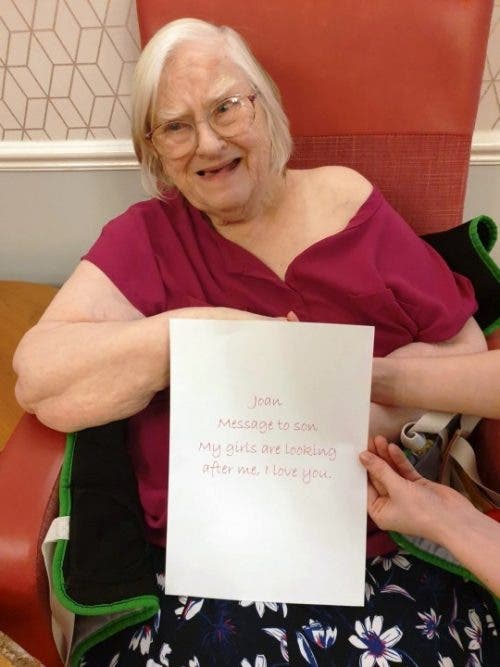 Joan
Message to son
My girls are looking
after me, I love you.